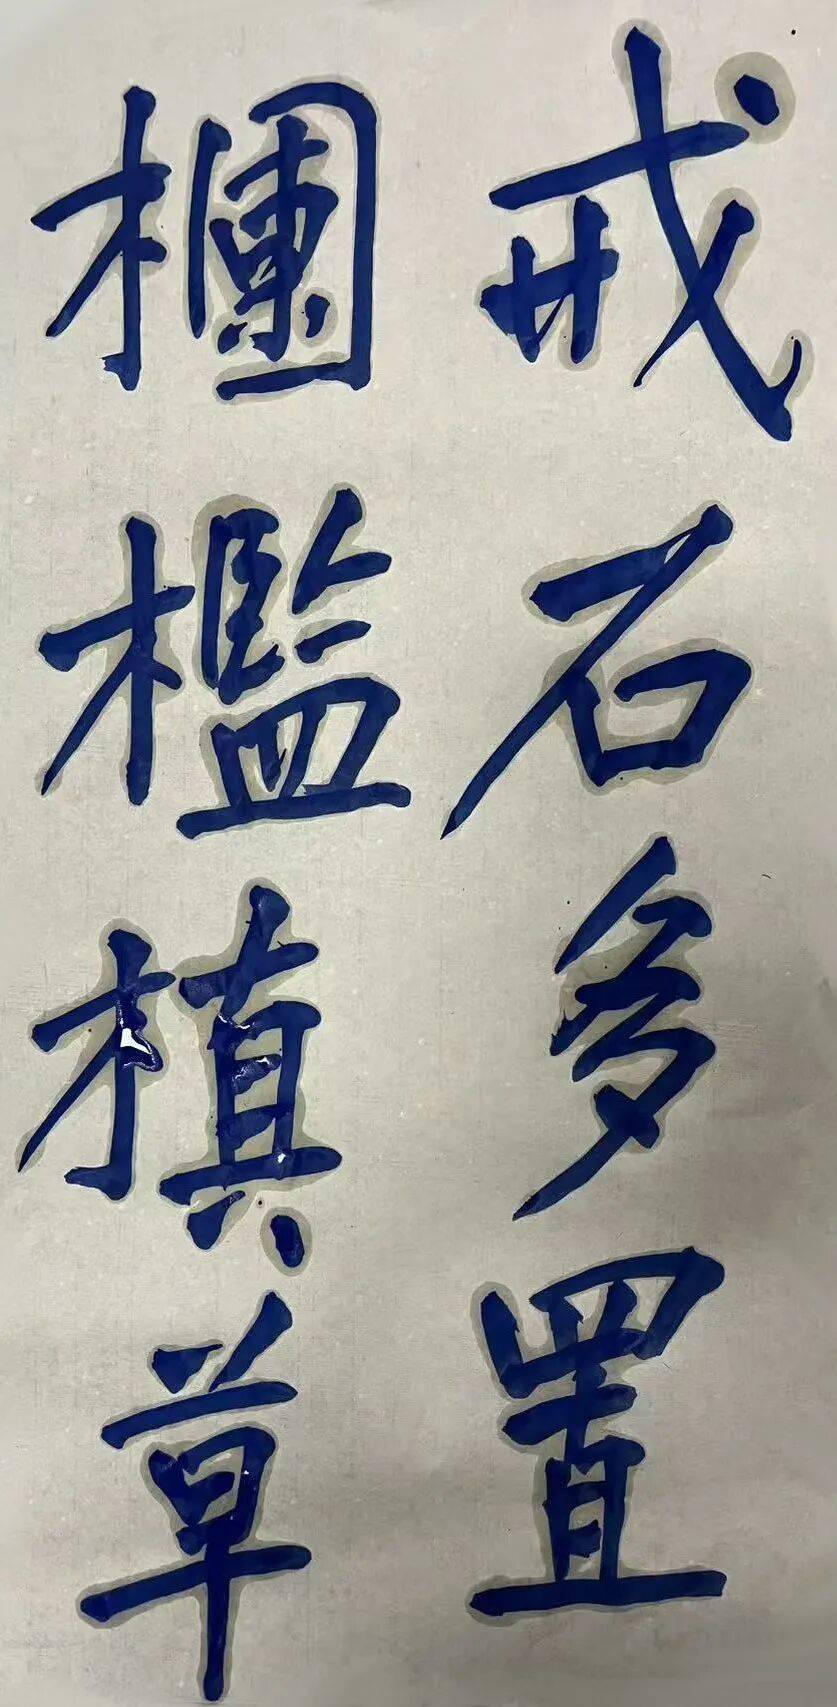 戒石多置
欄檻植草